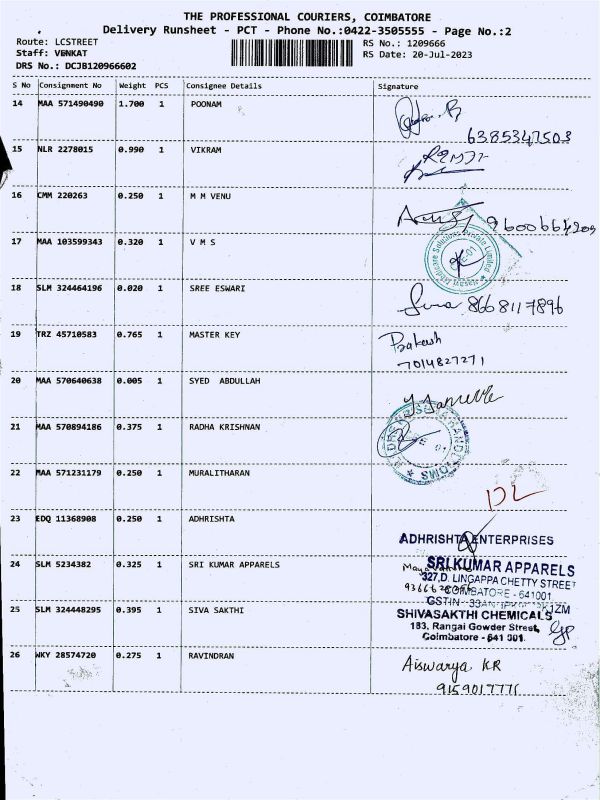 THE PROFESSIONAL COURIERS, COIMBATORE
Delivery Runsheet - PCT - Phone No.:0422-3505555 - Page No.:2
Route: LCSTREET
Staff: VENKAT
DRS No.: DCJB120966602
RS No.: 1209666
RS Date: 20-Jul-2023
S No Consignment No Weight PCS Consignee Details Signature
14 MAA 571490490 1.700 1 POONAM
6385347503
15 NLR 2278015 0.990 1 VIKRAM
16 CMM 220263 0.250 1 M M VENU
9600664209
17 MAA 103599343 0.320 1 V M S
18 SLM 324464196 0.020 1 SREE ESWARI
8668117896
19 TRZ 45710583 0.765 1 MASTER KEY
Prakash
7014827271
20 MAA 570640638 0.005 1 SYED ABDULLAH
21 MAA 570894186 0.375 1 RADHA KRISHNAN
22 MAA 571231179 0.250 1 MURALITHARAN
DL
23 EDQ 11368908 0.250 1 ADHRISHTA
ADHRISHTA ENTERPRISES
24 SLM 5234382 0.325 1 SRI KUMAR APPARELS
SRI KUMAR APPARELS
327, D. LINGAPPA CHETTY STREET
COIMBATORE - 641001
GSTIN
25 SLM 324448295 0.395 1 SIVA SAKTHI
SHIVASAKTHI CHEMICALS
183, Rangai Gowder Street,
Coimbatore - 641 001.
26 WKY 28574720 0.275 1 RAVINDRAN
Aiswarya KR
9159017771